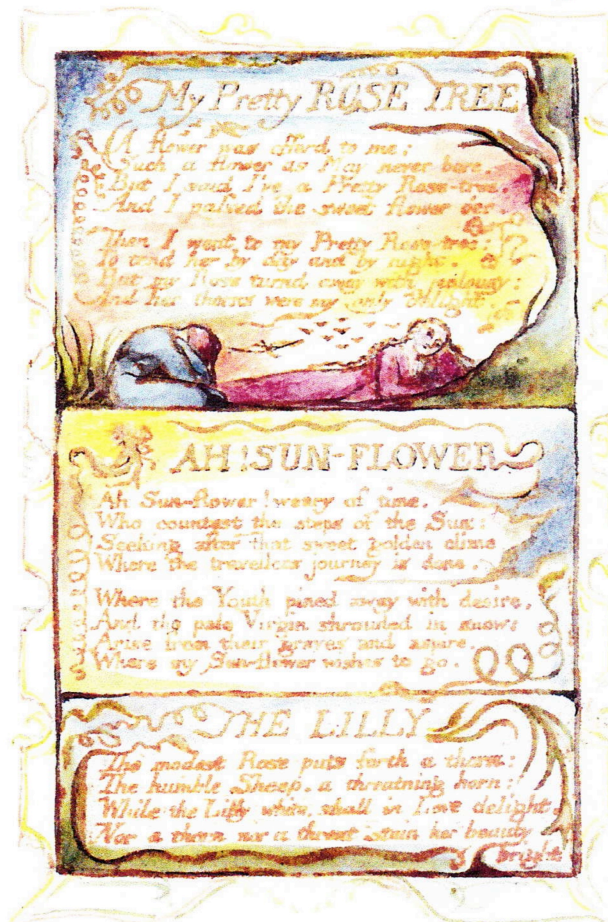 My Pretty ROSE TREE
A flower was offerd to me:
Such a flower as May never bore.
But I said I've a Pretty Rose-tree.
And I passed the sweet flower o'er.
Then I went to my Pretty Rose-tree:
To tend her by day and by night.
But my Rose turnd away with jealousy:
And her thorns were my only delight.
AH! SUN-FLOWER
Ah Sun-flower! weary of time.
Who countest the steps of the Sun:
Seeking after that sweet golden clime
Where the travellers journey is done.
Where the Youth pined away with desire,
And the pale Virgin shrouded in snow:
Arise from their graves and aspire.
Where my Sun-flower wishes to go.
THE LILLY
The modest Rose puts forth a thorn:
The humble Sheep. a threatning horn:
While the Lilly white, shall in Love delight,
Nor a thorn nor a threat stain her beauty
bright